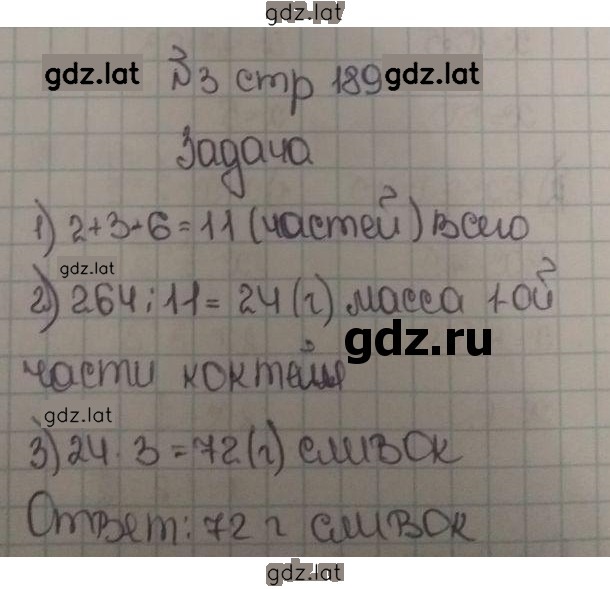 gdz.lat
gdz.lat №3 стр 189 gdz.lat
Задача
1) 2+3+6=11 (частей) всего
gdz.lat
2) 264:11=24(г) масса 1-ой
gdz.lat
части коктейля
gdz.lat
3) 24·3=72(г) сливок
Ответ: 72 г сливок
gdz.lat